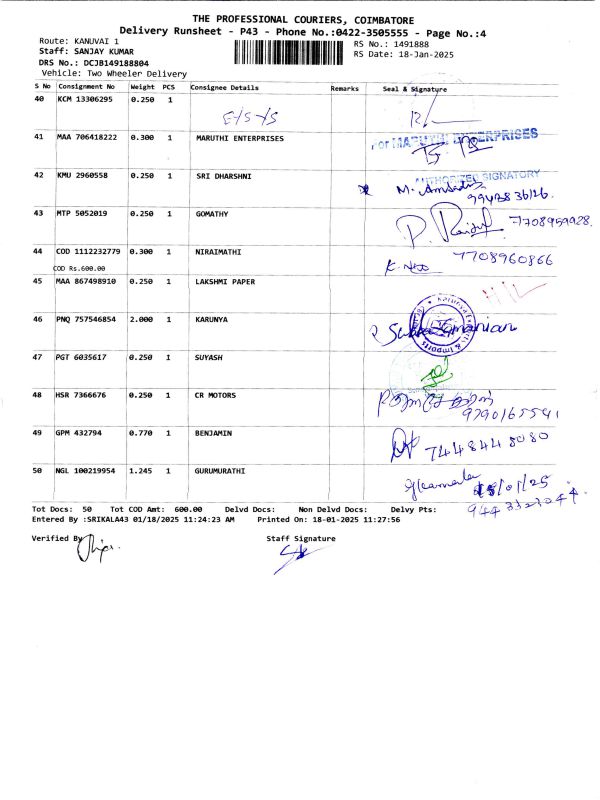 THE PROFESSIONAL COURIERS, COIMBATORE
Delivery Runsheet - P43 - Phone No.:0422-3505555 - Page No.:4
Route: KANUVAI 1
RS No.: 1491888
Staff: SANJAY KUMAR
RS Date: 18-Jan-2025
DRS No.: DCJB149188804
Vehicle: Two Wheeler Delivery
S No Consignment No Weight PCS Consignee Details Remarks Seal & Signature
40 KCM 13306295 0.250 1
41 MAA 706418222 0.300 1 MARUTHI ENTERPRISES For MARUTHI ENTERPRISES
AUTHORIZED SIGNATORY
42 KMU 2960558 0.250 1 SRI DHARSHNI
43 MTP 5052019 0.250 1 GOMATHY 7708959928
44 COD 1112232779 0.300 1 NIRAIMATHI 7708960866
COD Rs.600.00
45 MAA 867498910 0.250 1 LAKSHMI PAPER
46 PNQ 757546854 2.000 1 KARUNYA
47 PGT 6035617 0.250 1 SUYASH
48 HSR 7366676 0.250 1 CR MOTORS 9790165541
49 GPM 432794 0.770 1 BENJAMIN 7448448080
50 NGL 100219954 1.245 1 GURUMURATHI
Tot Docs: 50 Tot COD Amt: 600.00 Delvd Docs: Non Delvd Docs: Delvy Pts:
Entered By :SRIKALA43 01/18/2025 11:24:23 AM Printed On: 18-01-2025 11:27:56
Verified By Staff Signature